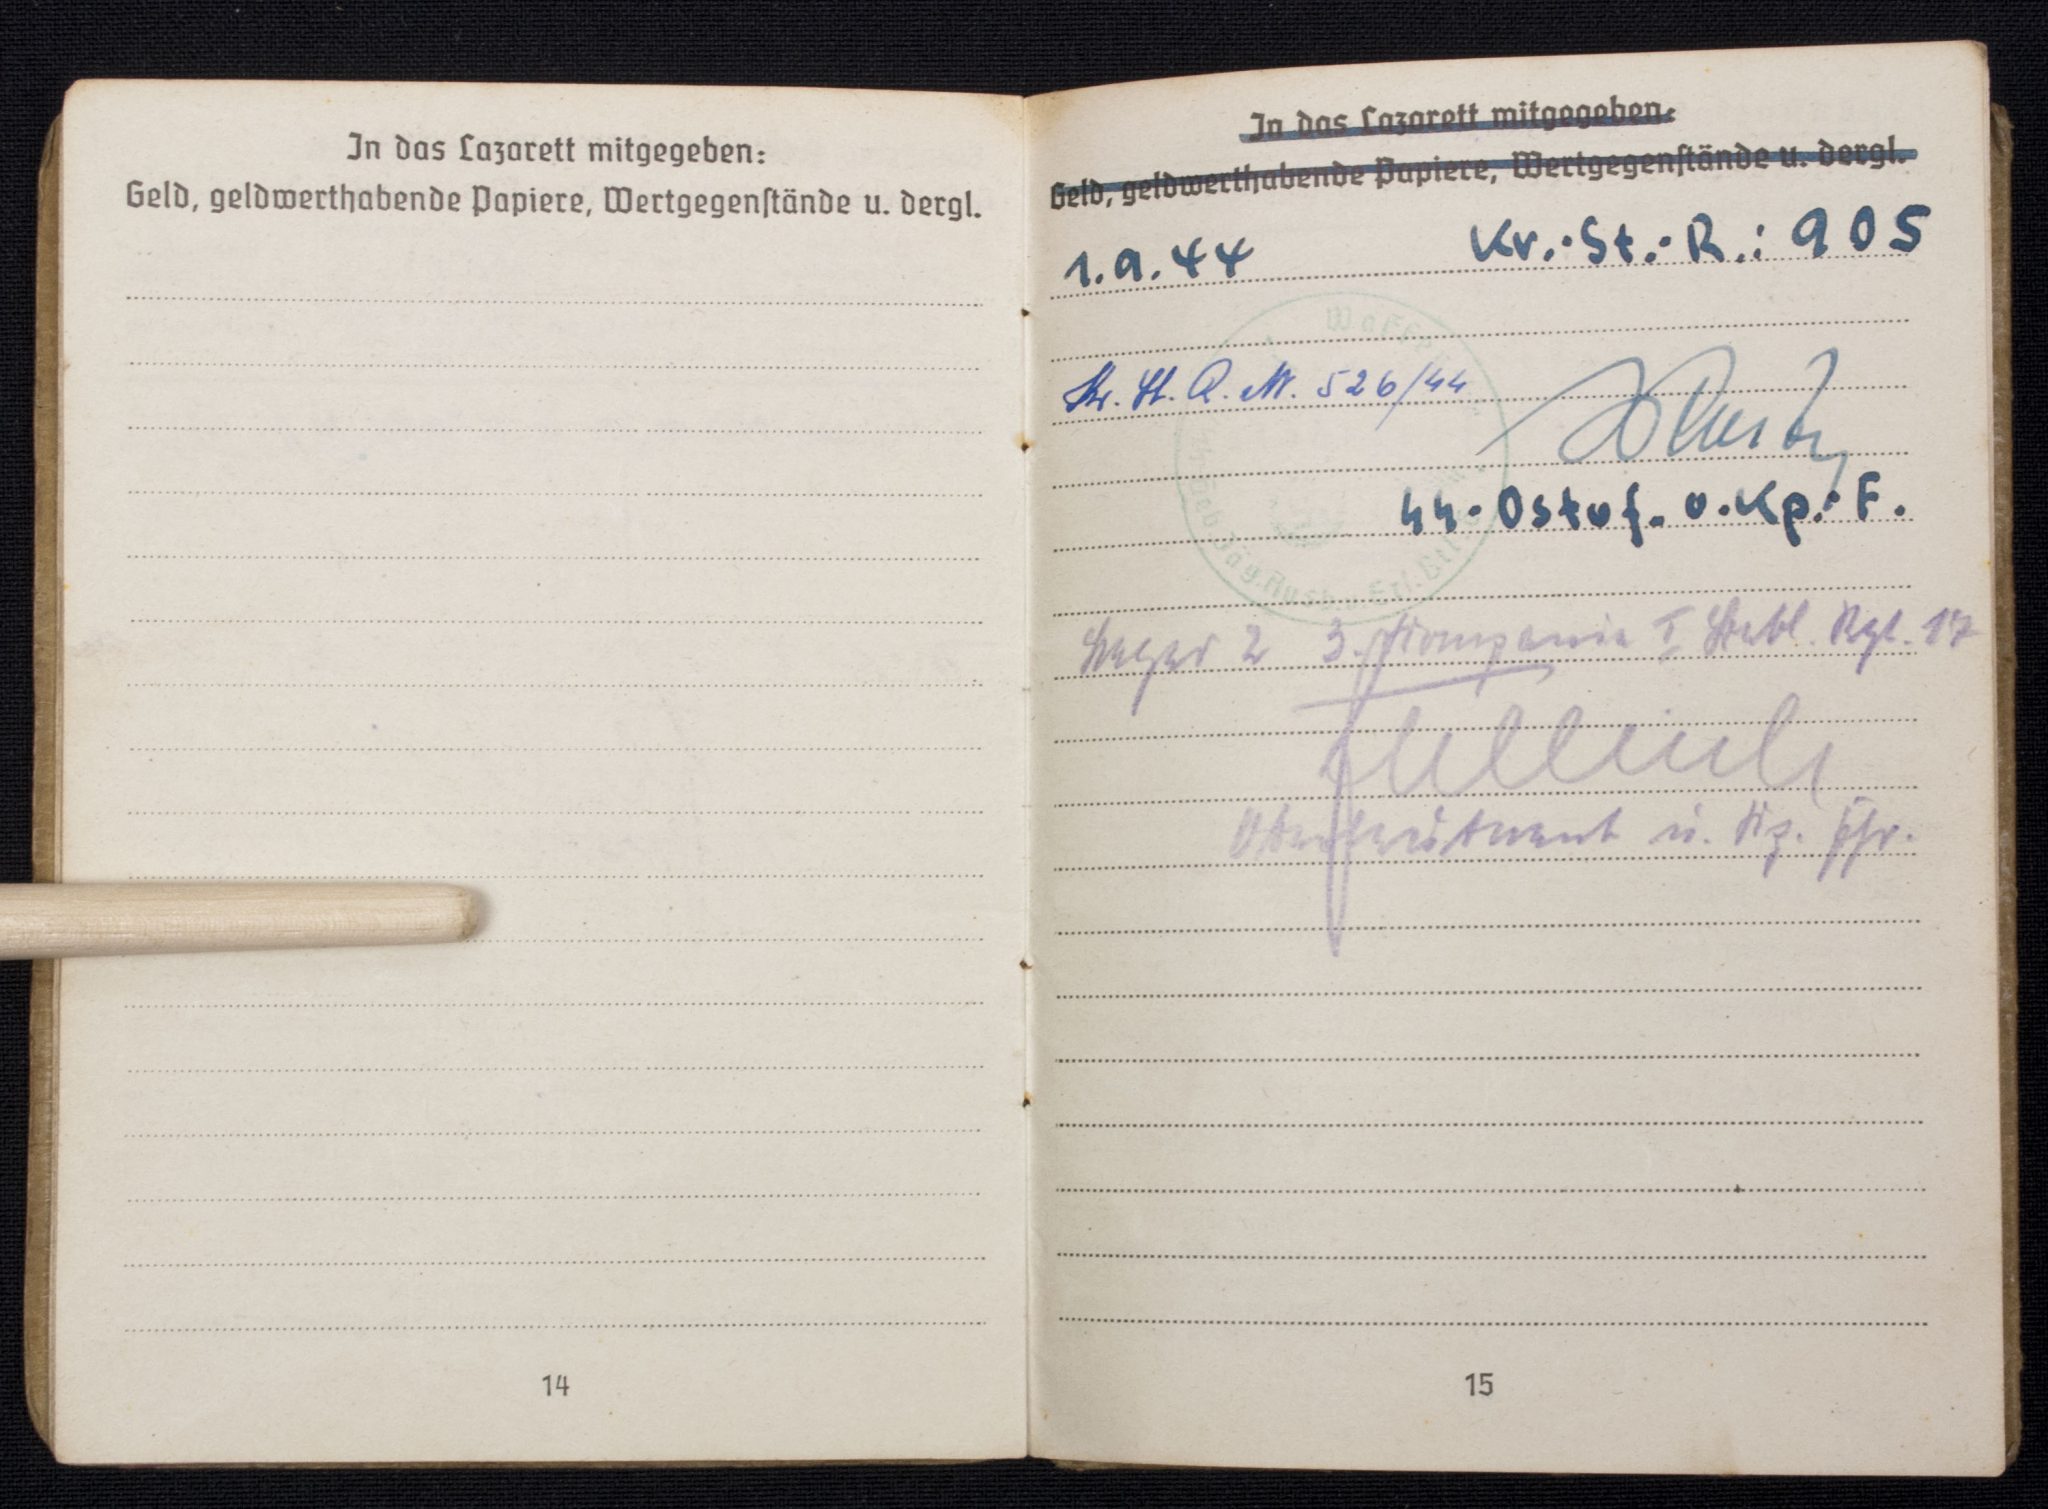 In das Lazarett mitgegeben:
Geld, geldwerthabende Papiere, Wertgegenstände u. dergl.
14
In das Lazarett mitgegeben:
Geld, geldwerthabende Papiere, Wertgegenstände u. dergl.
1.9.44 Kr.-St.-R.: 905
Kr. St. R. Nr. 526/44
ϟϟ-Ostuf. u. Kp.-F.
Geb. Jäg. Ausb. u. Ers. Btl.
Lager 2 3. Kompanie I Rgt. 17
Oberleutnant u. Kp. Fhr.
15